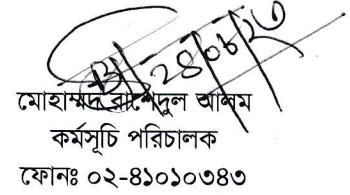 ২৪/০৮/২৩
মোহাম্মদ রাশেদুল আলম
কর্মসূচি পরিচালক
ফোনঃ ০২-৪১০১০৩৪৩